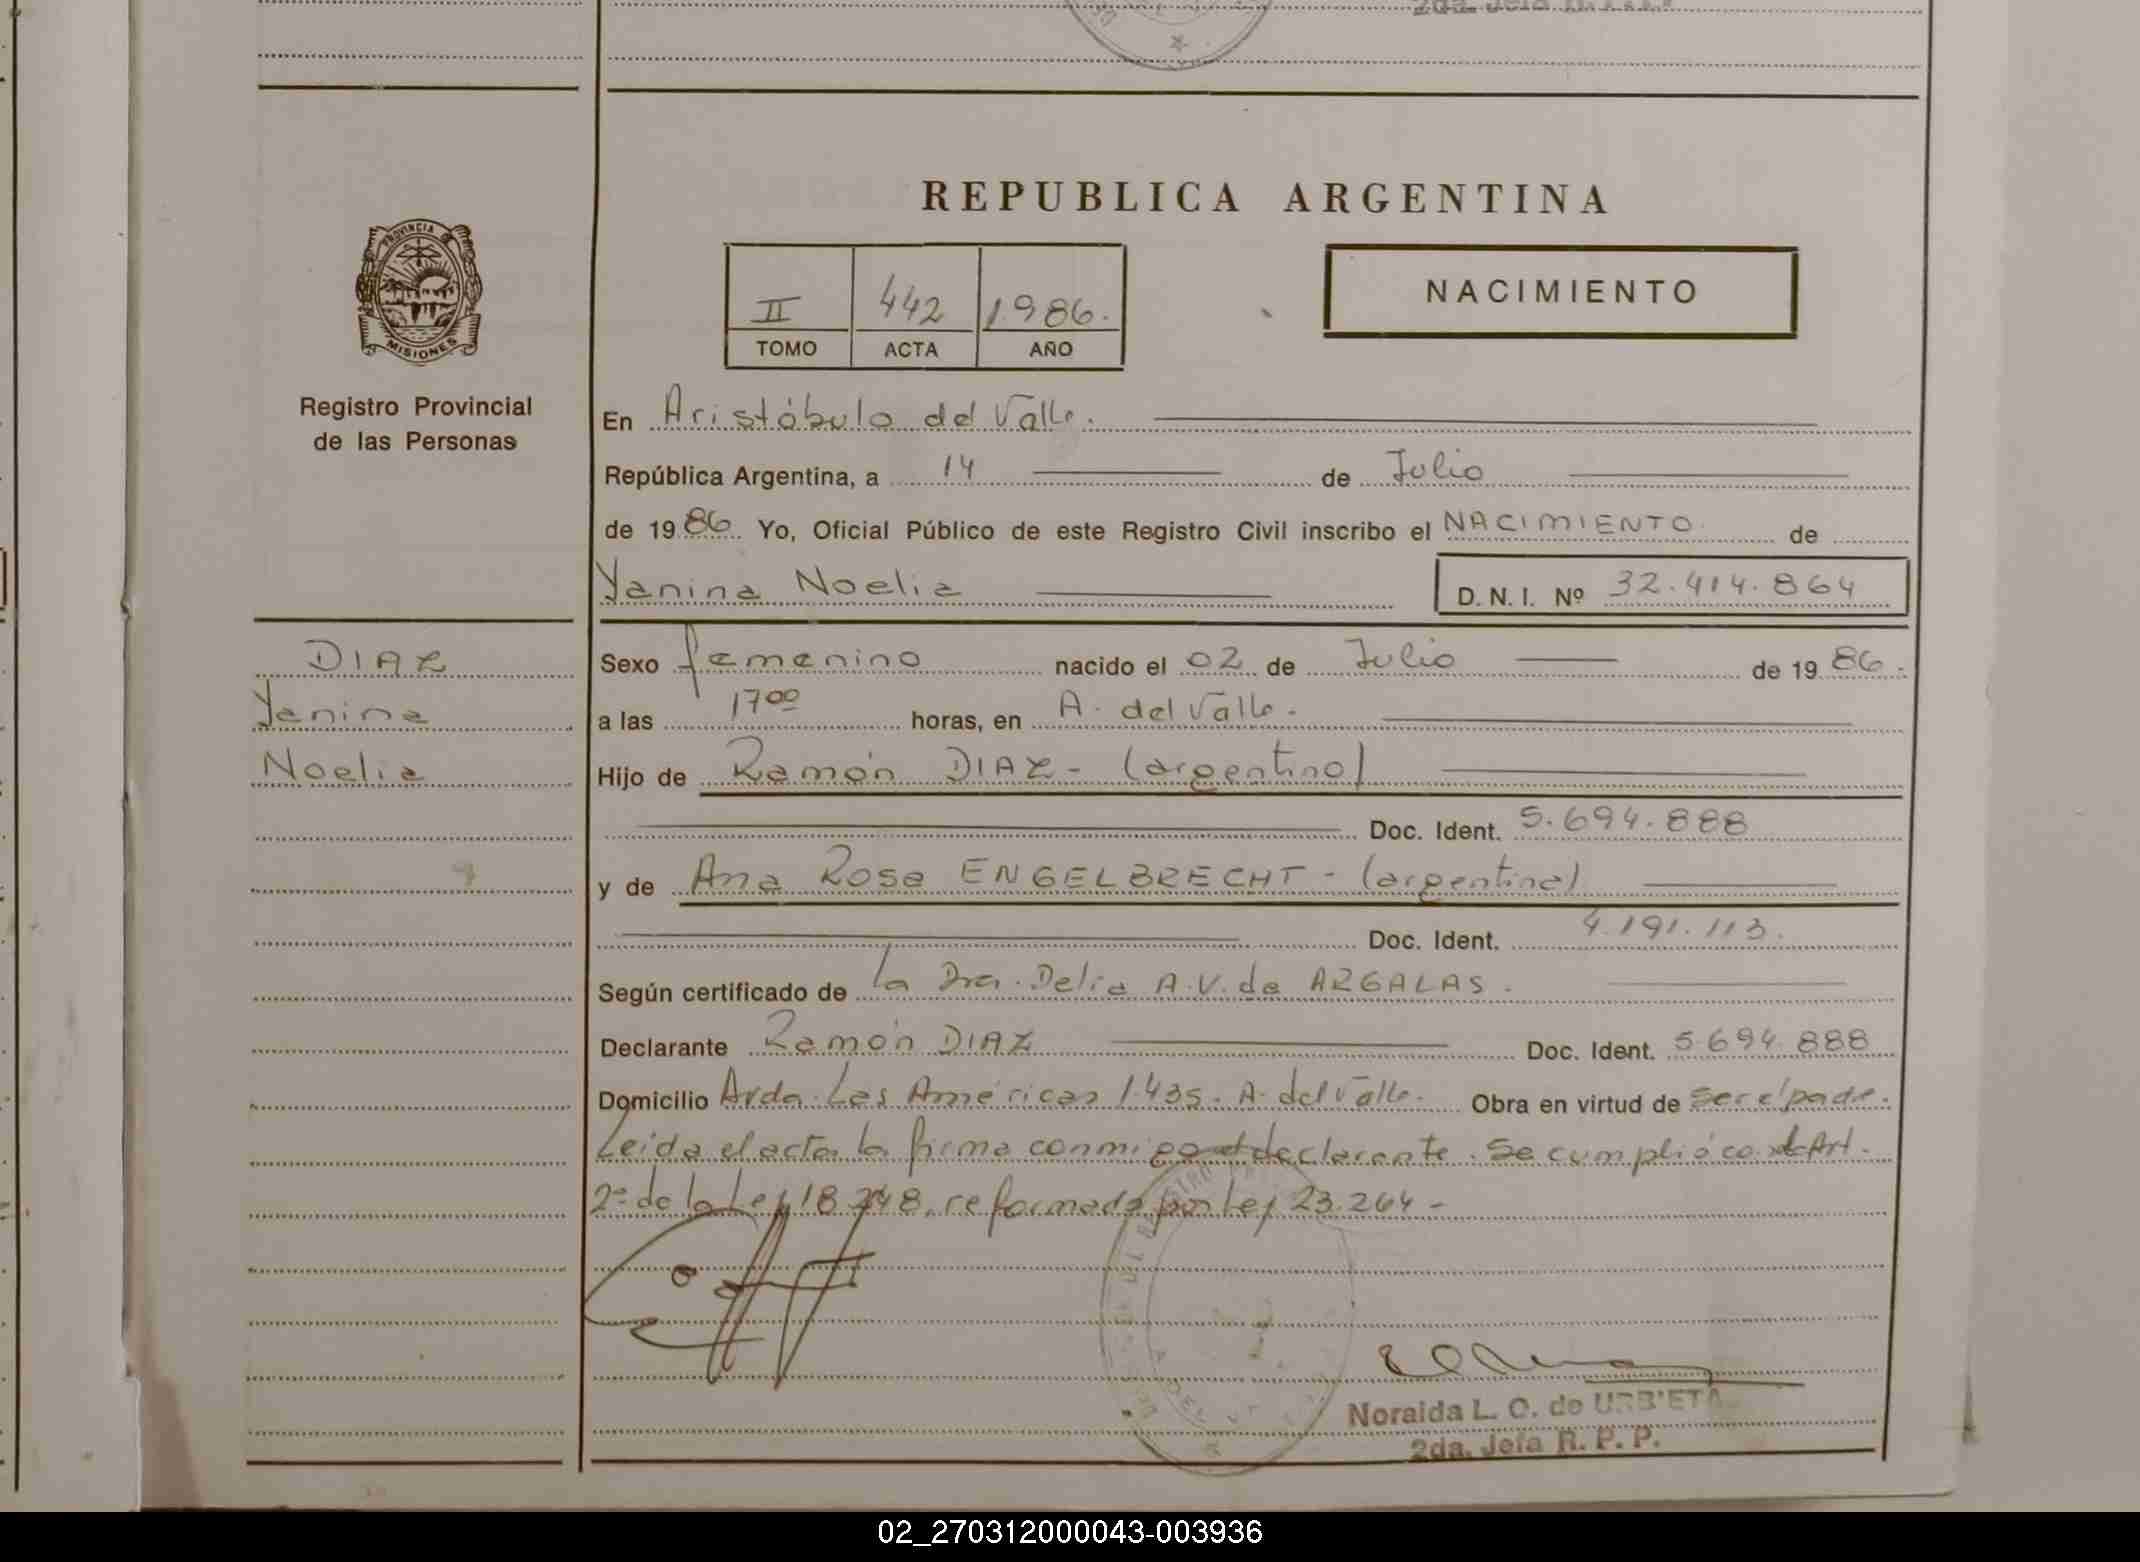 2da. Jefa R. P. P.
REPUBLICA ARGENTINA
PROVINCIA
MISIONES
Registro Provincial
de las Personas
II 442 1986.
TOMO ACTA AÑO
NACIMIENTO
En Aristóbulo del Valle.
República Argentina, a 14 de Julio
de 1986. Yo, Oficial Público de este Registro Civil inscribo el NACIMIENTO de
Yanina Noelia D. N. I. Nº 32.414.864
DIAZ
Yanina
Noelia
Sexo femenino nacido el 02 de Julio de 1986.
a las 17ºº horas, en A. del Valle.
Hijo de Ramón DIAZ - (argentino)
Doc. Ident. 5.694.888
y de Ana Rosa ENGELBRECHT - (argentina)
Doc. Ident. 4.191.113.
Según certificado de la Dra. Delia A.V. de ARGALAS.
Declarante Ramón DIAZ Doc. Ident. 5.694.888
Domicilio Avda. Las Américas 1.435. A. del Valle. Obra en virtud de ser el padre.
Leída el acta la firma conmigo el declarante. Se cumplió con el Art.
2º de la Ley 18.248, reformada por Ley 23.264 -
Noralda L. O. de URBIETA
2da. Jefa R. P. P.
02_270312000043-003936